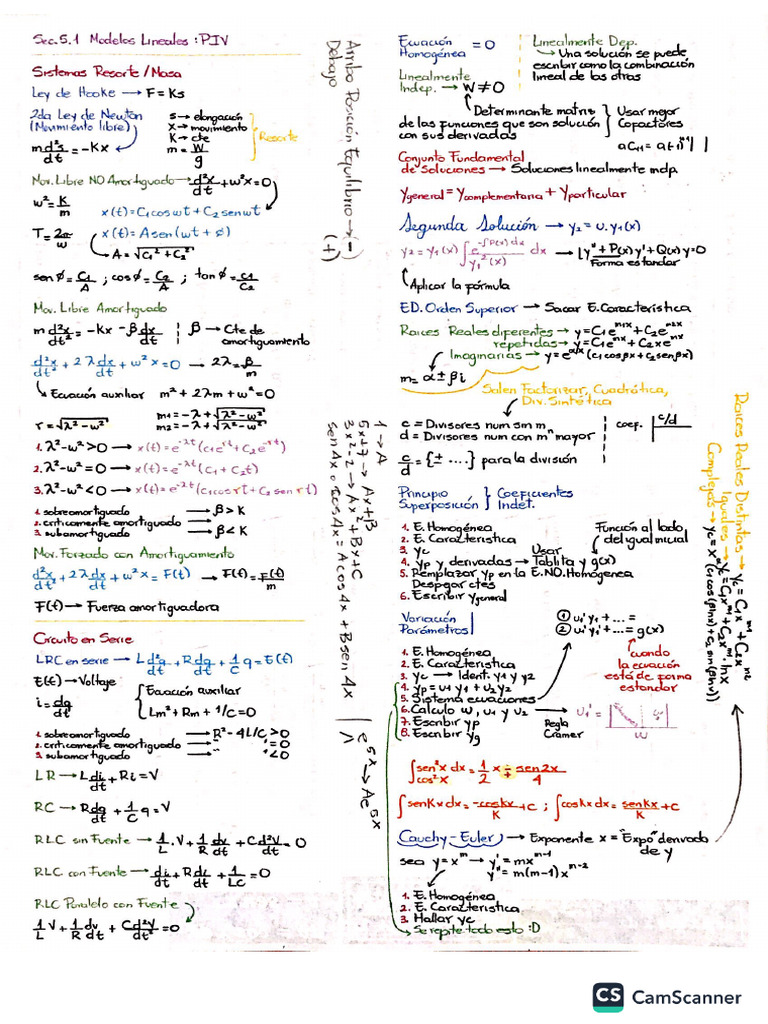 Sec.5.1 Modelos Lineales: PIV
Sistemas Resorte/Masa
Ley de Hooke → F = Ks
2da Ley de Newton
(Movimiento libre)
s → elongación
x → movimiento
K → cte
m = W/g
} Resorte
m d²s/dt = -Kx
Mov. Libre NO Amortiguado → d²x/dt + ω²x = 0
ω² = K/m
x(t) = C1 cos ωt + C2 sen ωt
T = 2π/ω
x(t) = A sen(ωt + ø)
A = √(C1² + C2²)
sen ø = C1/A ; cos ø = C2/A ; tan ø = C1/C2
Mov. Libre Amortiguado
m d²x/dt² = -Kx - β dx/dt | β → Cte de amortiguamiento
d²x/dt² + 2λ dx/dt + ω²x = 0 → 2λ = β/m
↳ Ecuación auxiliar m² + 2λm + ω² = 0
r = √(λ² - ω²)
m1 = -λ + √(λ² - ω²)
m2 = -λ + √(λ² - ω²)
1. λ² - ω² > 0 → x(t) = e^-λt (C1 e^rt + C2 e^-rt)
2. λ² - ω² = 0 → x(t) = e^-λt (C1 + C2t)
3. λ² - ω² < 0 → x(t) = e^-λt (C1 cos rt + C2 sen rt)
1. sobreamortiguado → β > K
2. críticamente amortiguado →
3. subamortiguado → β < K
Mov. Forzado con Amortiguamiento
d²x/dt² + 2λ dx/dt + ω²x = F(t) → F(t) = F(t)/m
F(t) → Fuerza amortiguadora
Circuito en Serie
LRC en serie → L d²q/dt + R dq/dt + 1/C q = E(t)
E(t) → Voltaje
i = dq/dt
{ Ecuación auxiliar
Lm² + Rm + 1/C = 0
1. sobreamortiguado → R² - 4L/C > 0
2. críticamente amortiguado → '' = 0
3. subamortiguado → '' < 0
LR → L di/dt + Ri = V
RC → R dq/dt + 1/C q = V
RLC sin Fuente → 1/L . V + 1/R dv/dt + C d²V/dt² = 0
RLC con Fuente → di/dt + R di/dt + 1/LC = 0
RLC Paralelo con Fuente
1/L V + 1/R dv/dt + C d²V/dt² = 0
Arriba Posición Equilibrio → (-)
Debajo (+)
1 → A
5x+7 → Ax+B
3x²-2 → Ax² + Bx + C
sen 4x o cos 4x = A cos 4x + B sen 4x
e^5x → Ae^5x
Ecuación Homogénea = 0
Linealmente Dep.
↳ Una solución se puede
escribir como la combinación
lineal de las otras
Linealmente Indep. → W ≠ 0
Determinante matriz
de las funciones que son solución
con sus derivadas
Usar mejor
Cofactores
Conjunto Fundamental
de Soluciones → Soluciones linealmente indp.
Ygeneral = Ycomplementaria + Yparticular
Segunda Solución → y2 = u.y1(x)
y2 = y1(x) ∫ e^-∫P(x)dx / y1²(x) dx → [y'' + P(x)y' + Q(x)y = 0
Forma estandar
Aplicar la fórmula
ED. Orden Superior → Sacar E. Característica
Raices Reales diferentes → y = C1e^m1x + C2e^m2x
repetidas → y = C1e^mx + C2xe^mx
Imaginarias → y = e^αx (C1 cos βx + C2 sen βx)
m = α ± βi
Salen Factorizar, Cuadrática,
Div. Sintética
c = Divisores num sm m
d = Divisores num con mⁿ mayor
coef. | c/d
c/d = {± ....} para la división
Principio Superposición } Coeficientes Indet.
1. E. Homogénea
2. E. Característica
3. yc
4. yp y derivadas → Usar Tablita y g(x)
Función al lado
del igual inicial
5. Remplazar yp en la E. NO. Homogénea
Despejar ctes
6. Escribir ygeneral
Variación Parámetros
① u1'y1 + ... =
② u1'y1' + ... = g(x)
cuando
la ecuación
está de forma
estandar
1. E. Homogénea
2. E. Característica
3. yc → Ident. y1 y y2
4. yp = u1y1 + u2y2
5. Sistema ecuaciones
6. Calculo W, u1 y u2 → u1' =
W
Regla
Cramer
7. Escribir yp
8. Escribir yg
∫ sen²x/cos²x dx = 1/2 x ∓ sen2x/4
∫ sen Kx dx = -cos Kx/K + C ; ∫ cos Kx dx = sen Kx/K + C
Cauchy-Euler → Exponente x = "Expo" derivada
de y
sea y = x^m → y' = mx^m-1
y'' = m(m-1)x^m-2
1. E. Homogénea
2. E. Característica
3. Hallar yc
Se repite todo esto :D
Raices Reales Distintas → yc = C1x^m1 + C2x^m2
Iguales → yc = C1x^m + C2x^m . lnx
Complejas → yc = x^α (C1 cos(βlnx) + C2 sin(βlnx))
CS CamScanner